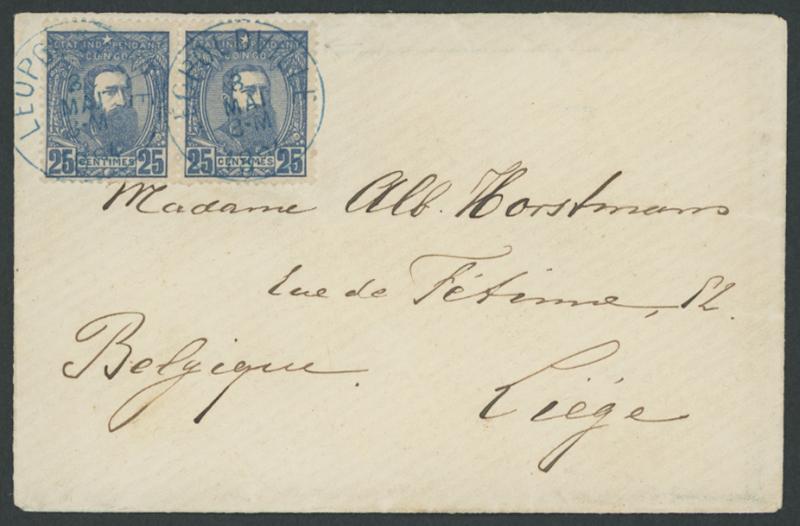 ETAT INDEPENDANT
DU CONGO
25 CENTIMES 25
ETAT INDEPENDANT
DU CONGO
25 CENTIMES 25
LEOPOLDVILLE
8
MAI
3-M
LEOPOLDVILLE
8
MAI
3-M
Madame Alb. Horstmans
rue de Fétinne, 82.
Belgique.
Liége